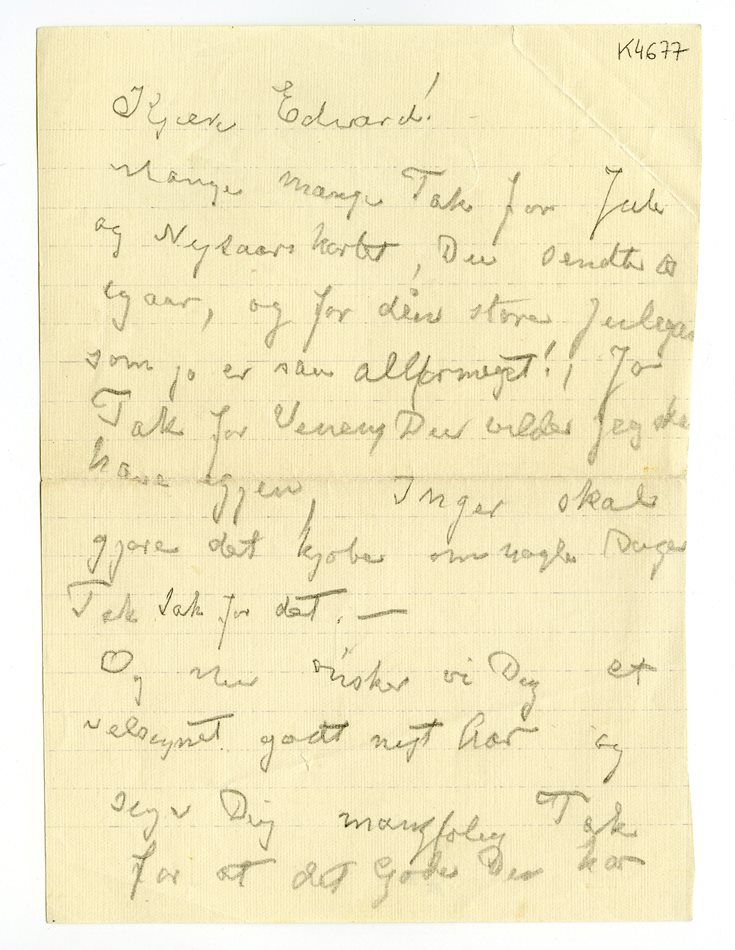 K4677
Kjære Edward!
Mange mange Tak for Jule
og Nytaarskortet, Du sendte
igaar, og for den store Julegave
som jo er saa altformeget!, Ja
Tak for Du vilde jeg skal
have igjen, Inger skal
gjøre det kjøbe om nogle Dager
Tak Tak for det. —
Og nu ønsker vi Dig et
velsignet godt nyt Aar og
siger Dig mangfoldig Tak
for at det Gode Du har